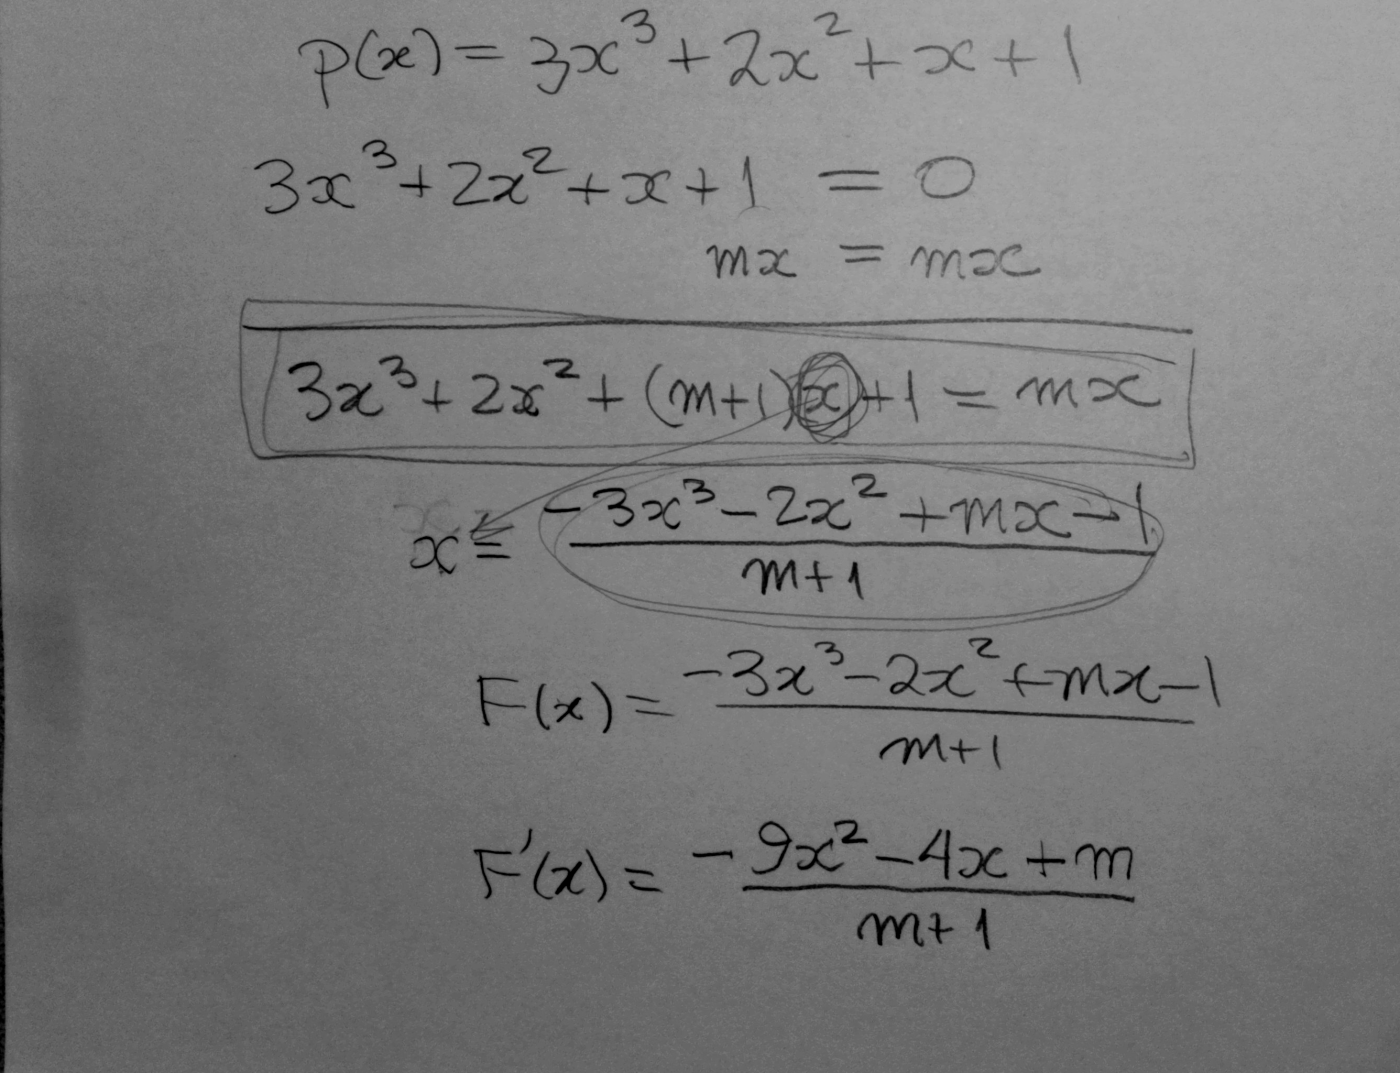 p(x) = 3x³ + 2x² + x + 1
3x³ + 2x² + x + 1 = 0
mx = mx
3x³ + 2x² + (m+1)x + 1 = mx
x = (-3x³ - 2x² + mx - 1)/(m+1)
F(x) = (-3x³ - 2x² + mx - 1)/(m+1)
F'(x) = (-9x² - 4x + m)/(m+1)